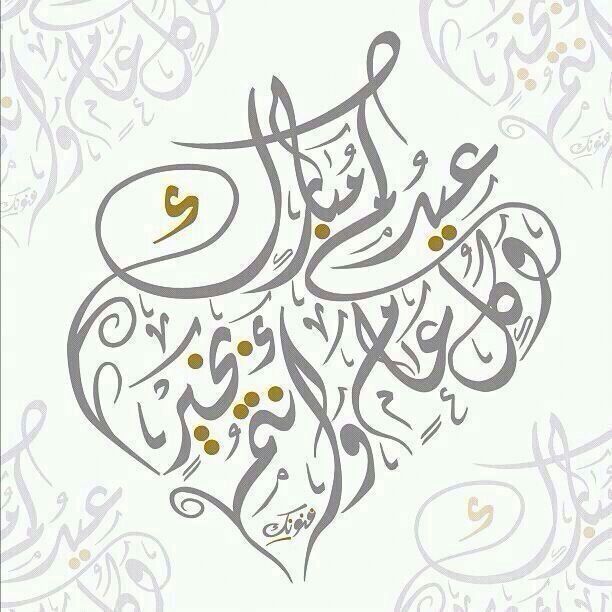 عيدكم مبارك
وكل عام وانتم بخير
فنونك